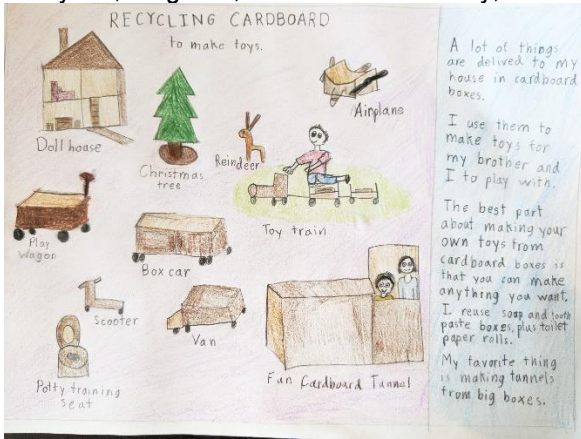 RECYCLING CARDBOARD
to make toys.
Doll house
Christmas
tree
Reindeer
Airplane
Play
wagon
Box car
Toy train
Scooter
Van
Potty training
seat
Fun Cardboard Tunnel
A lot of things
are delived to my
house in cardboard
boxes.
I use them to
make toys for
my brother and
I to play with.
The best part
about making your
own toys from
cardboard boxes is
that you can make
anything you want.
I reuse soap and tooth
paste boxes, plus toilet
paper rolls.
My favorite thing
is making tunnels
from big boxes.